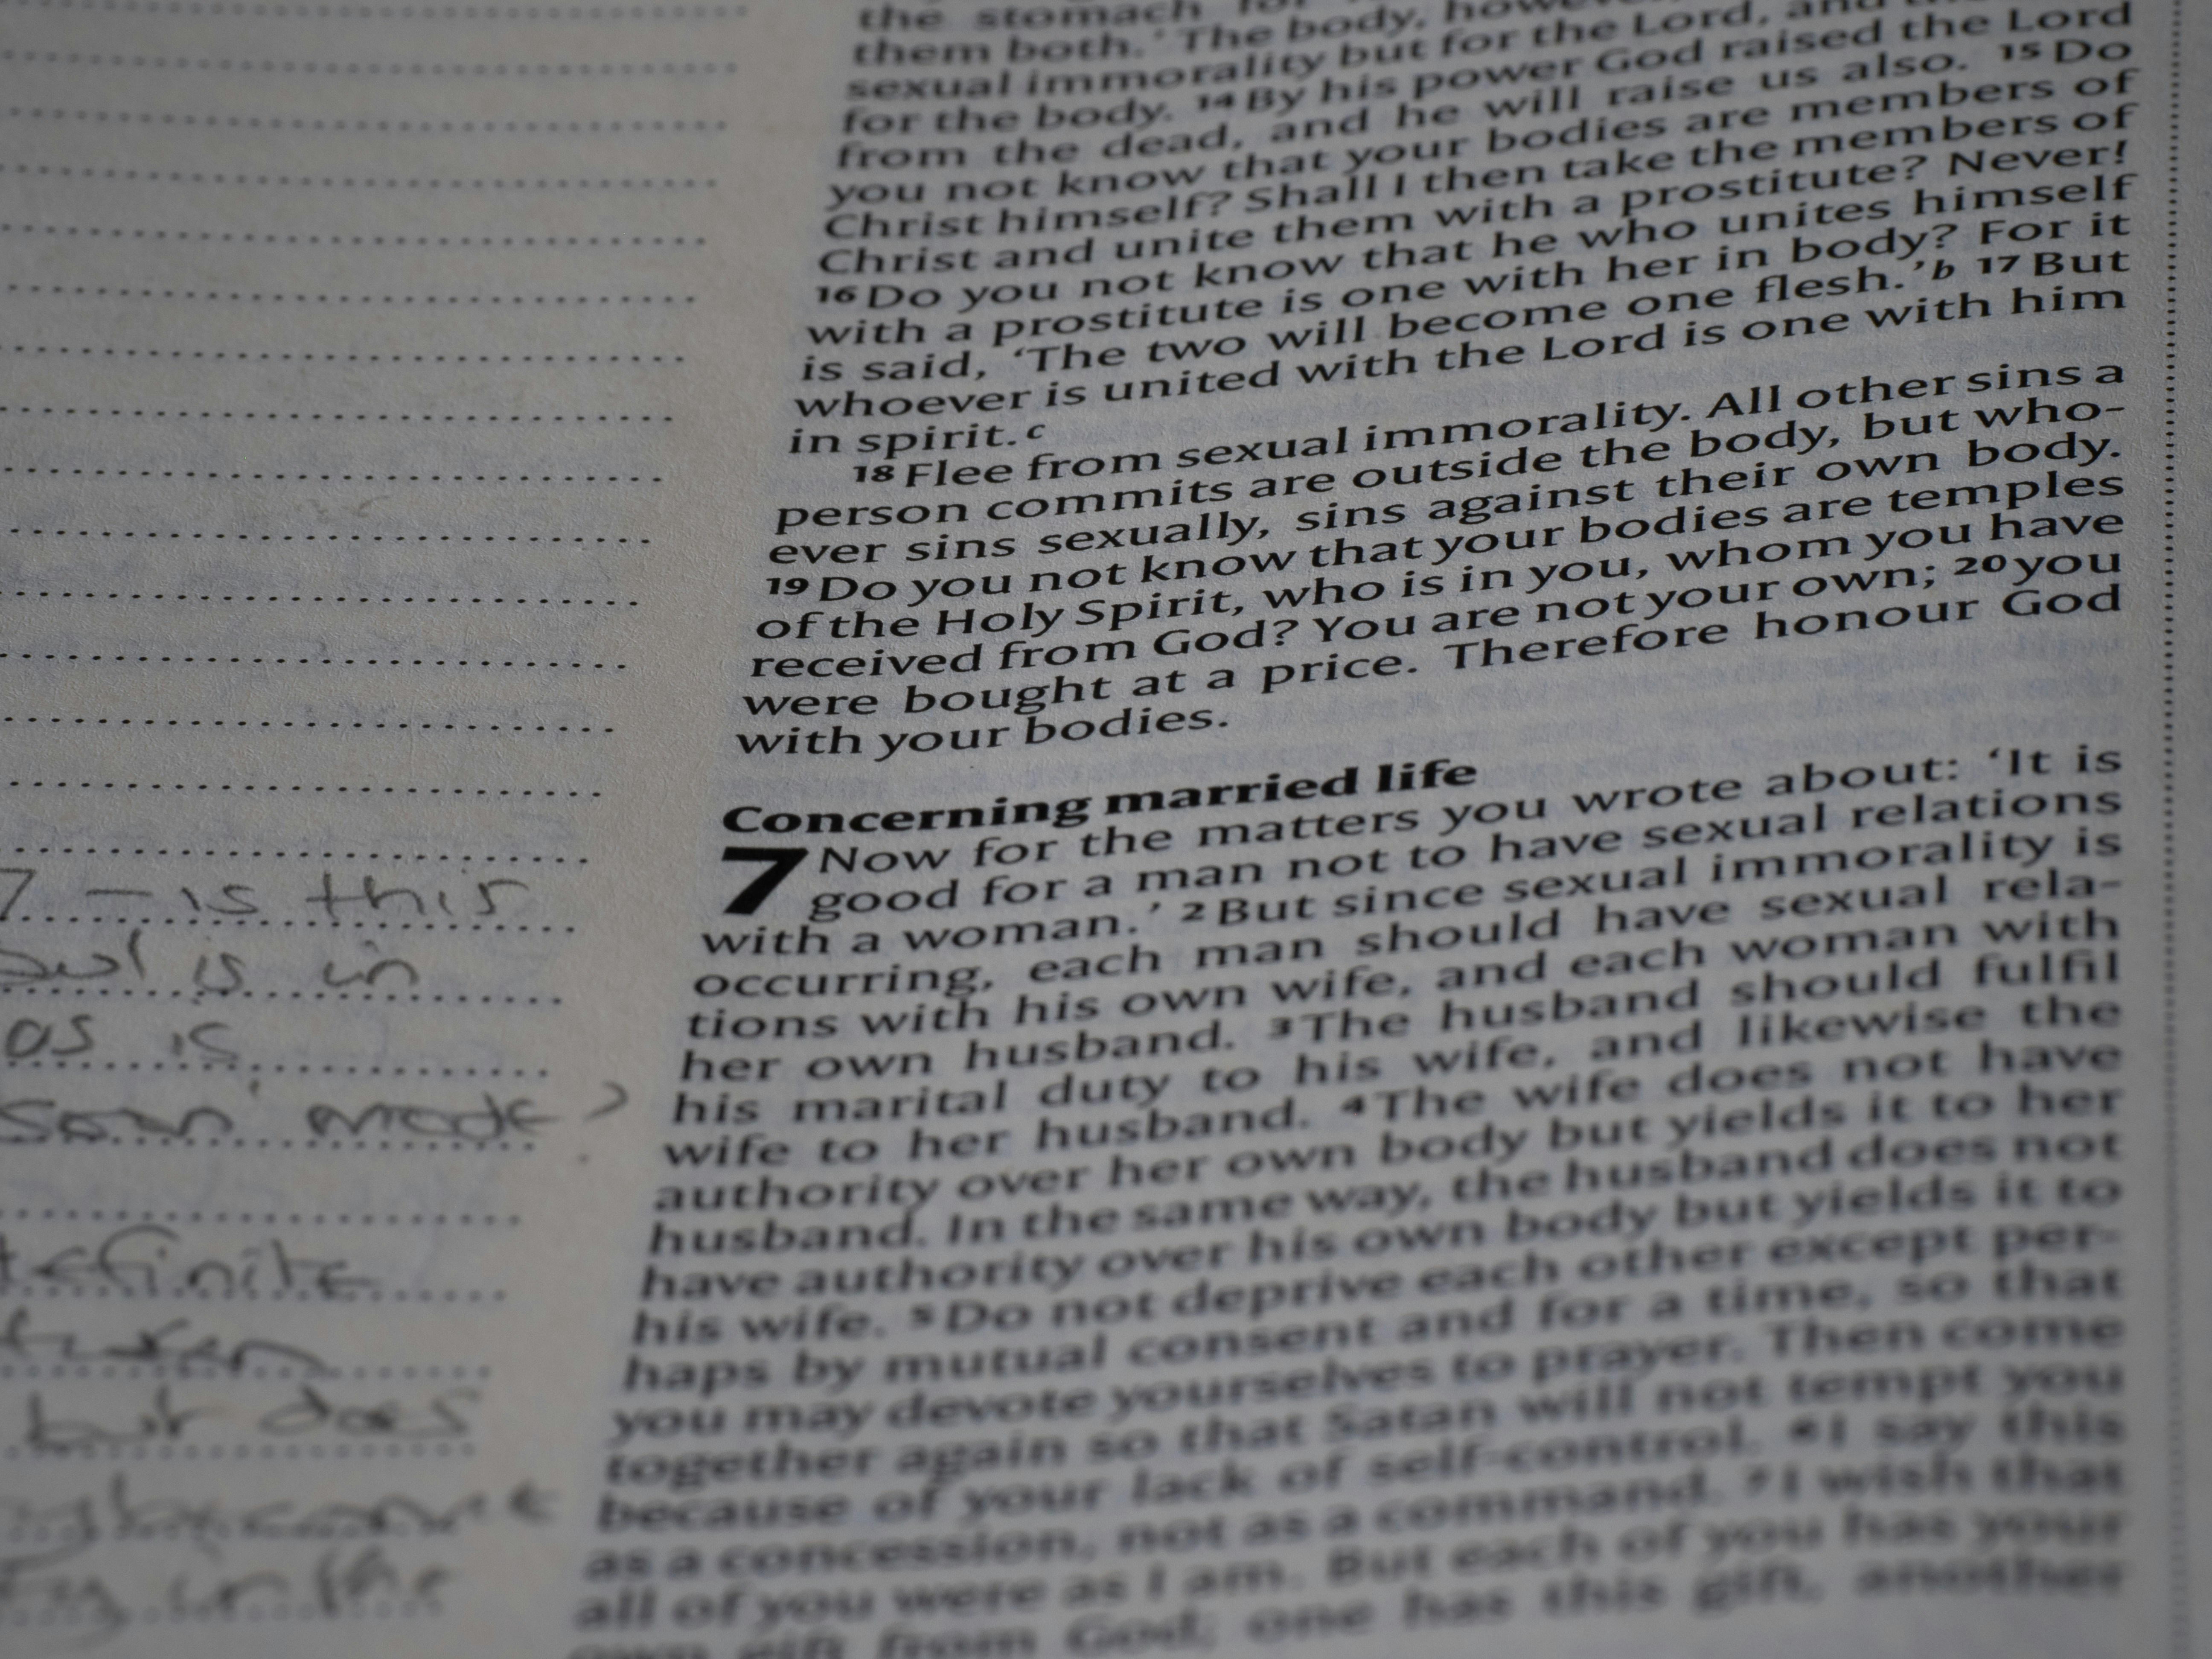 the stomach for
them both.' The body,
sexual immorality but for the Lord, and
for the body. 14 By his power God raised the Lord
from the dead, and he will raise us also. 15 Do
you not know that your bodies are members of
Christ himself? Shall I then take the members of
Christ and unite them with a prostitute? Never!
16 Do you not know that he who unites himself
with a prostitute is one with her in body? For it
is said, 'The two will become one flesh.' b 17 But
whoever is united with the Lord is one with him
in spirit. c
18 Flee from sexual immorality. All other sins a
person commits are outside the body, but who-
ever sins sexually, sins against their own body.
19 Do you not know that your bodies are temples
of the Holy Spirit, who is in you, whom you have
received from God? You are not your own; 20 you
were bought at a price. Therefore honour God
with your bodies.
Concerning married life
7 Now for the matters you wrote about: 'It is
good for a man not to have sexual relations
with a woman.' 2 But since sexual immorality is
occurring, each man should have sexual rela-
tions with his own wife, and each woman with
her own husband. 3 The husband should fulfil
his marital duty to his wife, and likewise the
wife to her husband. 4 The wife does not have
authority over her own body but yields it to her
husband. In the same way, the husband does not
have authority over his own body but yields it to
his wife. 5 Do not deprive each other except per-
haps by mutual consent and for a time, so that
you may devote yourselves to prayer. Then come
together again so that Satan will not tempt you
because of your lack of self-control. 6 I say this
as a concession, not as a command. 7 I wish that
all of you were as I am. But each of you has your
own gift from God; one has this gift, another
7 – is this
is in
os is
made?
definite
but does
in the